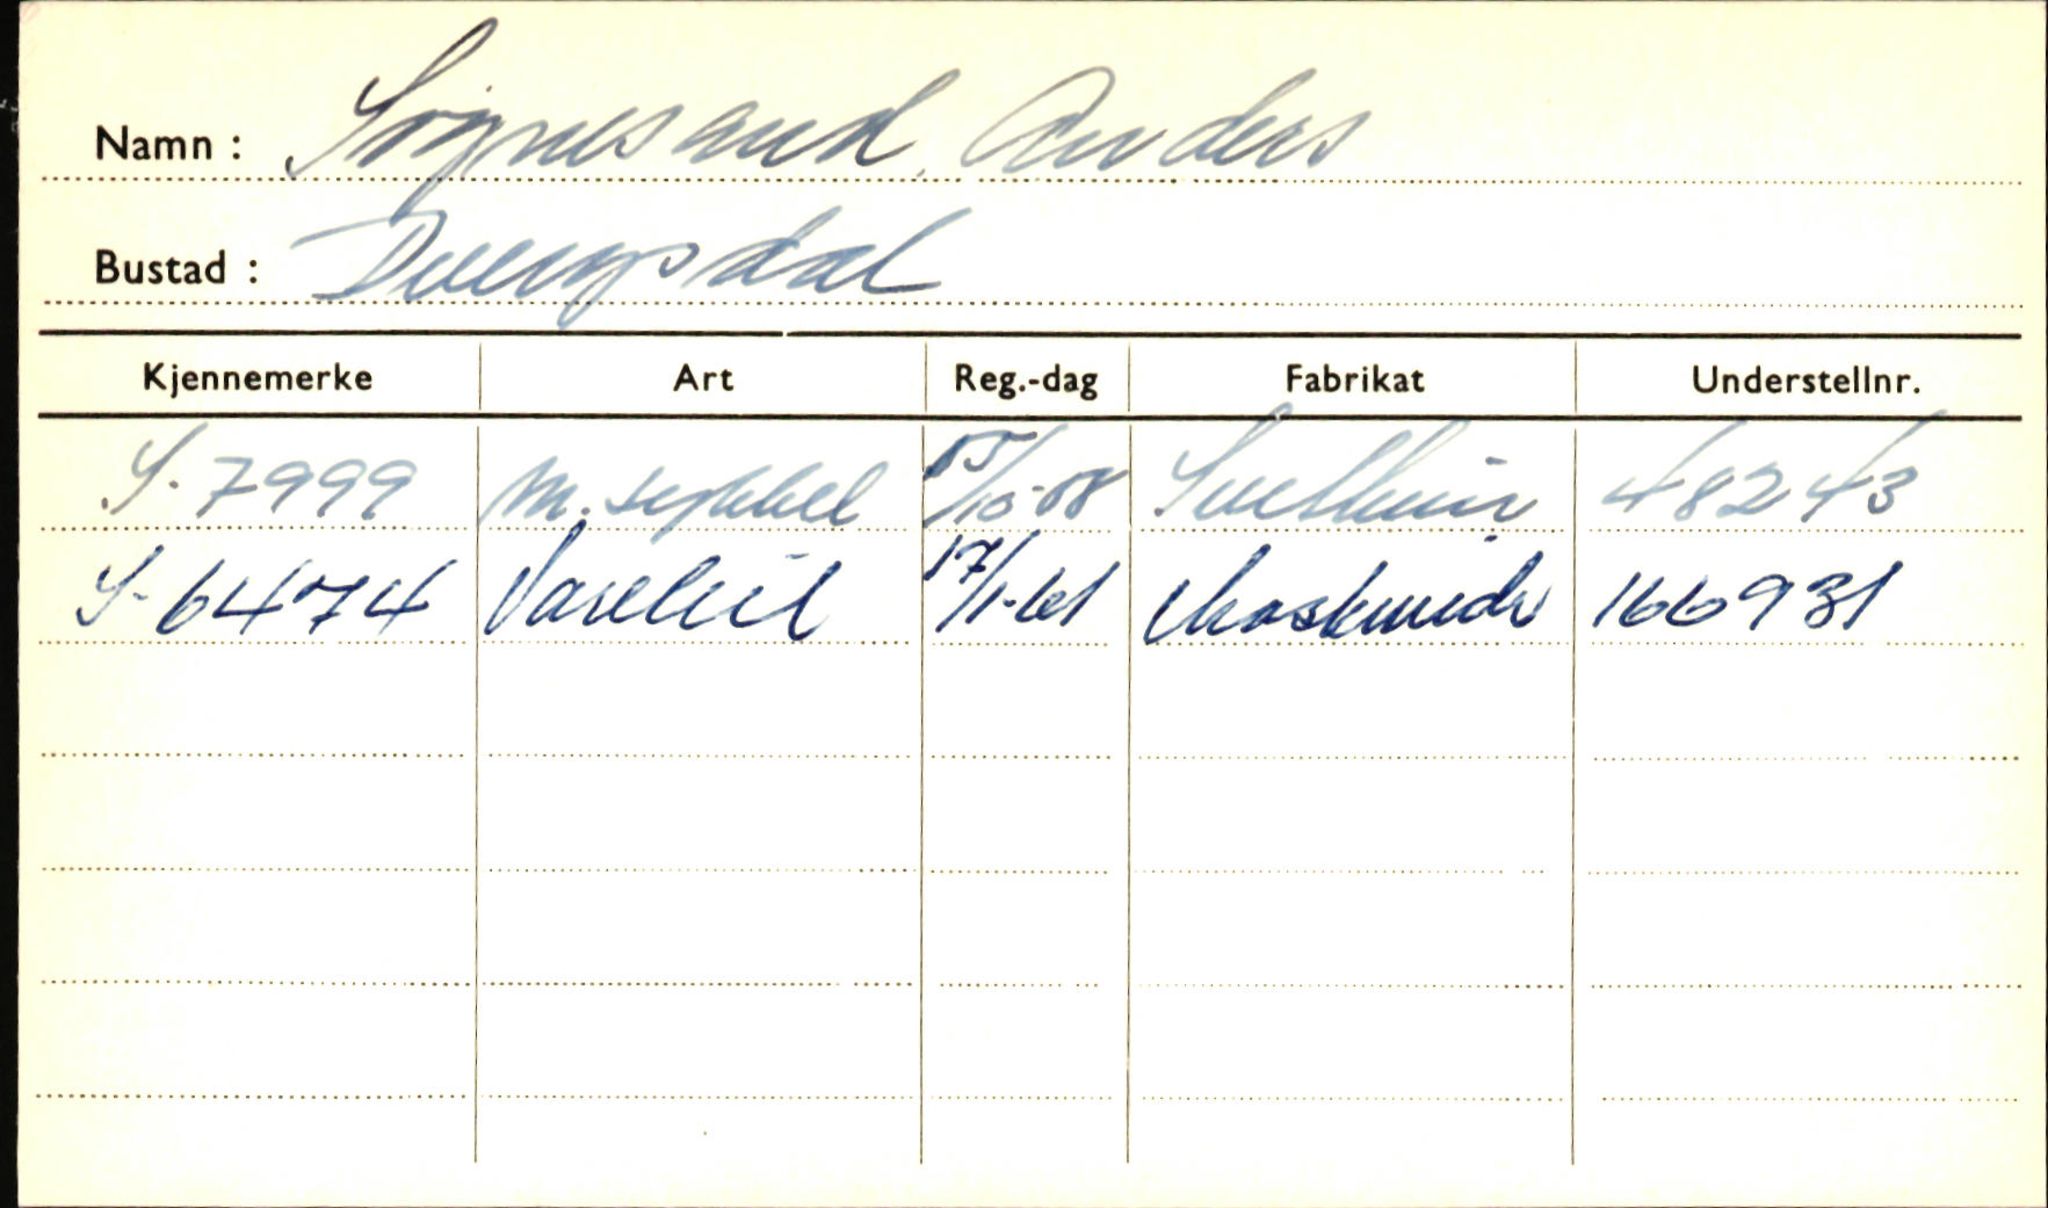 Namn : Sognesand, Anders
Bustad : Dvergsdal
Kjennemerke Art Reg.-dag Fabrikat Understellnr.
S-7999 M.sykkel 15/10-58 48243
S-6474 Varebil 17/1-61 Moskvich 166931